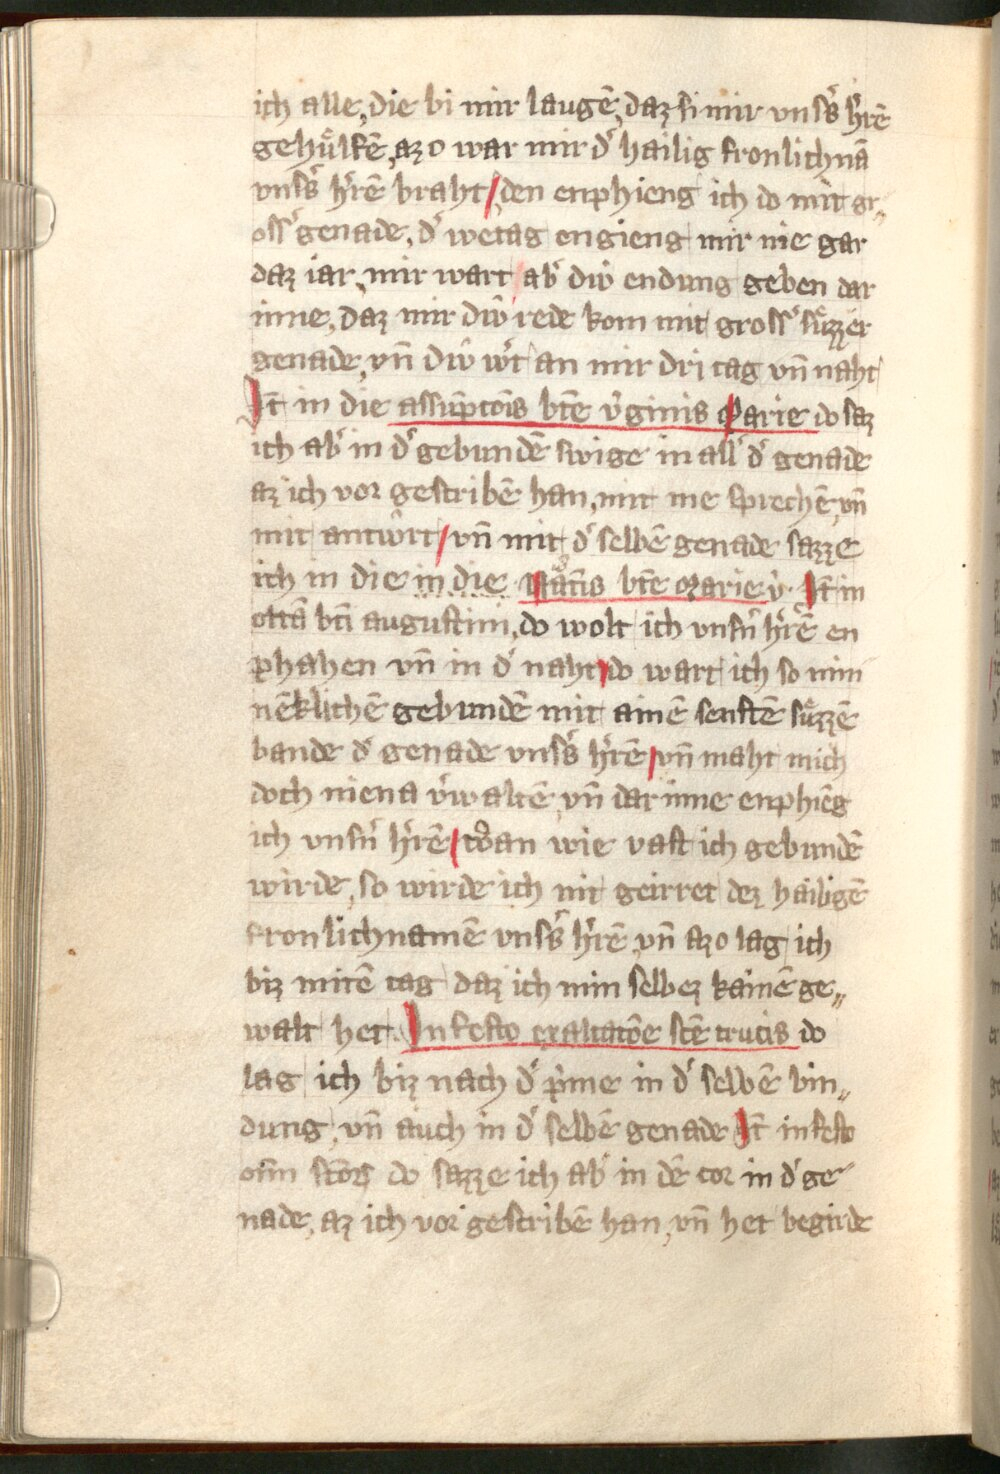 ich alle, die bi mir laugē, daz si mir vnsẘs h̓rē
gehůlfē, azo war mir d̓ hailig fronlichnā
vnss̓ h̓rē braht, den enphieng ich do mit gr„
oss̓ genade, d̓ wetag engieng mir nie gar
daz iar, mir wart ab̓ diw̓ endung geben dar
inne, daz mir diw̓ rede kom mit gross̓ sůzzer
genade, vn̄ diw̓ w̓t an mir dri tag vn̄ naht
It̄ in die assūptōis btē v̓ginis Marie do saz
ich ab̓ in d̓ gebundē swige in all̓ d̓ genade
az ich vor gescribē han, mit me sprechē, vn̄
mit antwrt / vn̄ mit d̓ selbē genade sazze
ich in die in die Natītis btē Marie v̓. It̄ in
octā bti augustini, do wolt ich vnsn̓ h̓rē en
phahen vn̄ in d̓ naht do wart ich so min
nēklichē gebundē mit ainē senftē sůzzē
bande d̓ genade vnss̓ h̓rē / vn̄ maht mich
doch niena v̓waltē, vn̄ dar inne enphiēg
ich vnsn̓ h̓rē / wan wie vast ich gebundē
wirde, so wirde ich nit geirret dez hailigē
fronlichnamē vnss̓ h̓rē vn̄ azo lag ich
biz mitē tag daz ich min selbez kainē ge„
walt het. In festo exaltatōe scē crucis do
lag ich biz nach d̓ p̓me in d̓ selbē bin„
dung, vn̄ auch in d̓ selbē genade It̄ in festo
om̄ sctōȝ do sazze ich ab̓ in dē cor in d̓ ge
nade, az ich vor gescribē han, vn̄ het begirde